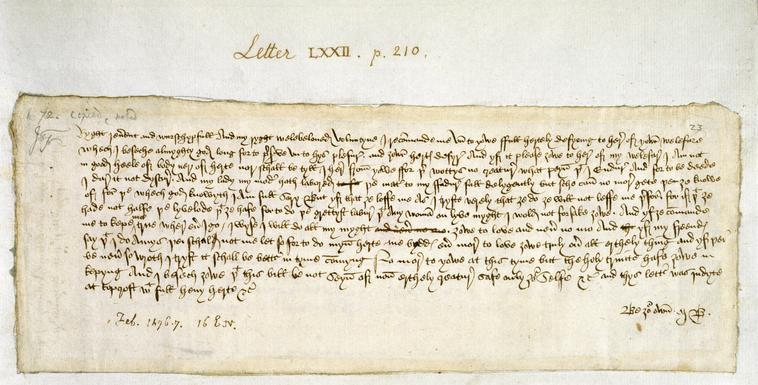 Letter LXXII. p. 210.
72.
23
Ryght reverent and wurschypfull and my ryght welebeloved Voluntyne I recommande me vn to yowe full hertely desyring to here of yowr welefare
whech I beseche almyghty god long for to preserve vn to hys plesure and yowr hertys desyre And yf it please yowe to here of my welefare I am not
in good heele of body ner of herte nor schall be tyll I here from yowe for þer wottys no creature what peyn þat I endure And for to be deede
I dure it not dyscure And my lady my moder hath labored þe mater to my fadure full delygently but sche can no more gete þen ye knowe
of for þe whech god knowyth I am full sory But yf that ye loffe me as I tryste verely that ye do ye will not leffe me þerfor for if þat ye
hade not halfe þe lyvelode þat ye hafe for to do þe grettyst labure þat any woman on lyve myght I wold not forsake yowe And yf ye commande
me to kepe me true where ever I go I wyse I will do all my myght yowe to love and never no mo And yf my freendys
say þat I do amys þei schal not me let so for to do myn herte me byddys ever more to love yowe truly over all erthely thing and yf þei
be never so wroth I tryst it schall be bettur in tyme commyng No more to yowe at this tyme but the holy trinite hafe yowe in
kepyng And I besech yowe þat this bill be not seyn of non erthely creature safe only your selfe &c And thys lettur was indyte
at Topcroft wt full hevy herte &c
Be your own M B.
Feb. 1476-7. 16 E. IV.